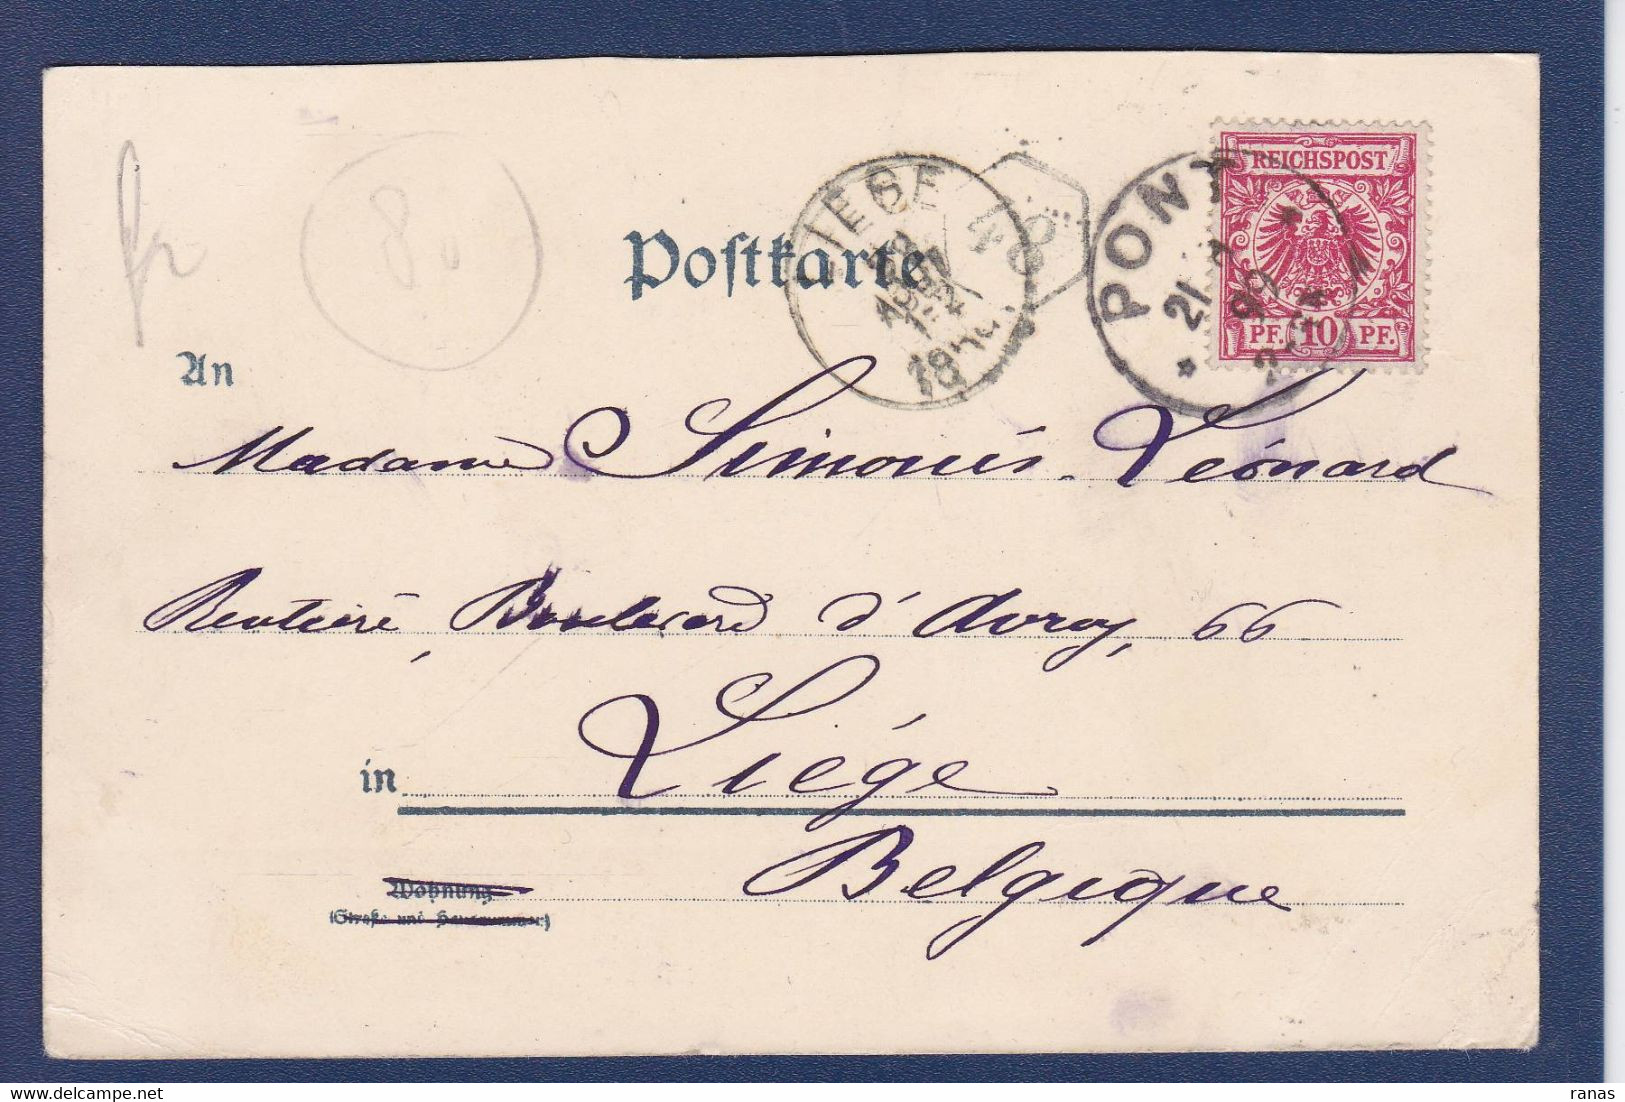 REICHSPOST
PF. 10 PF.
PONT
21
99
LIEGE
1899
48
80
Postkarte
An
Madame Simonis-Léonard
Rentière, Boulevard d'Avroy, 66
in Liége
Belgique
Wohnung
(Straße und Hausnummer)
ranas